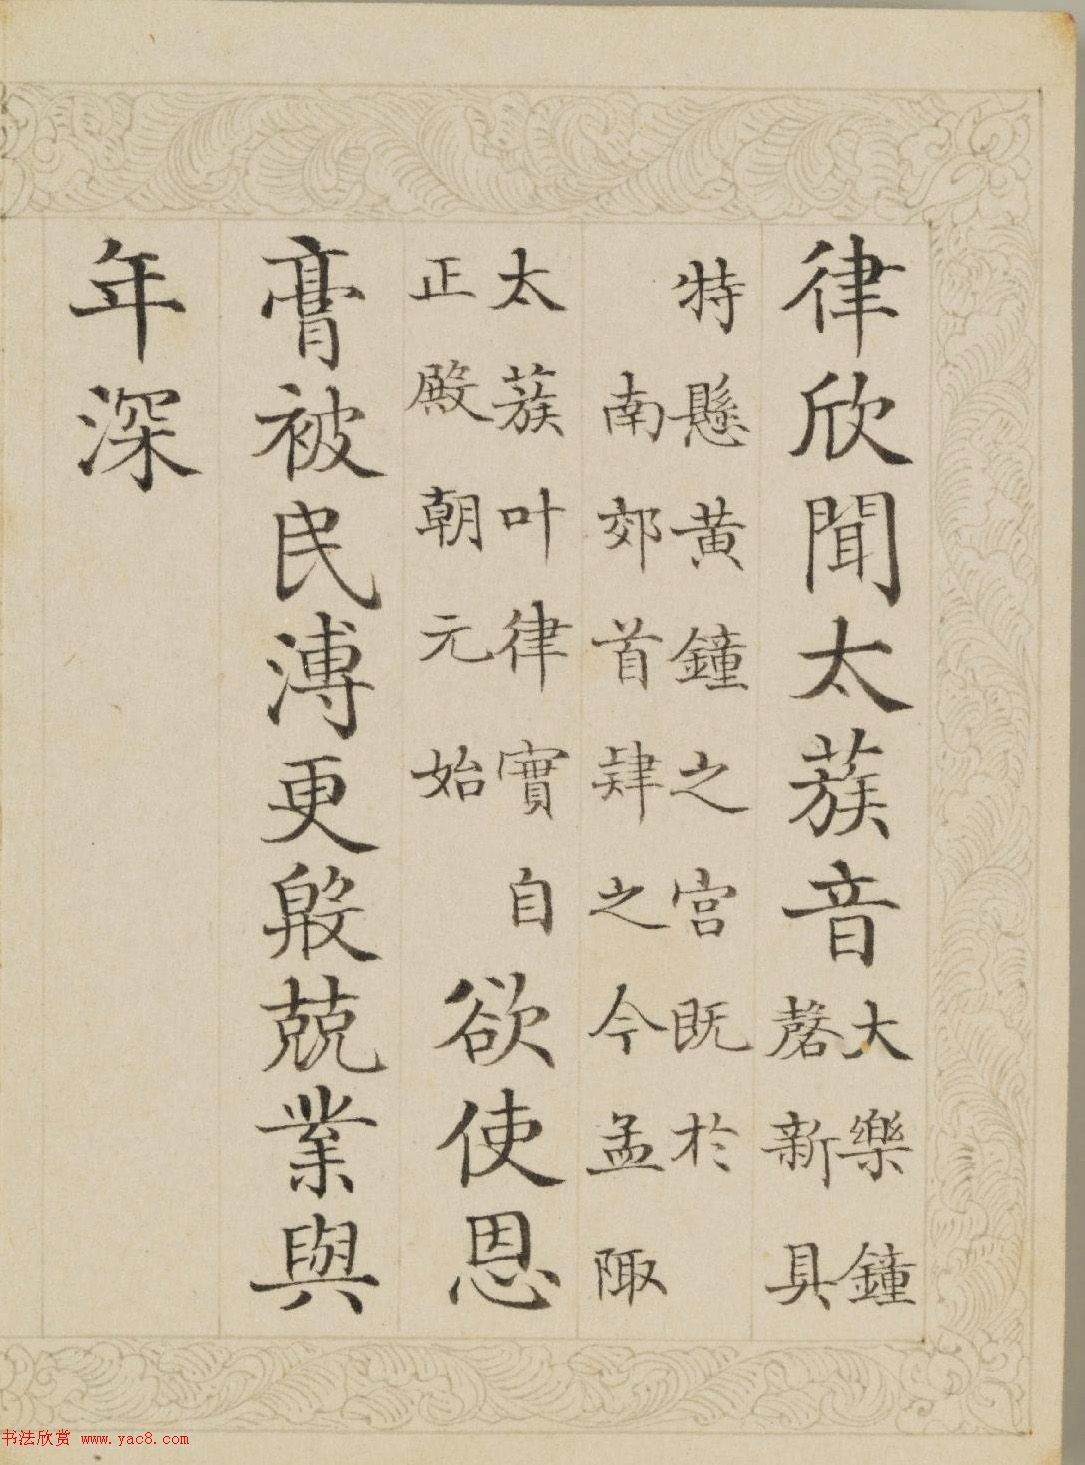 律欣聞太蔟音大樂鐘
磬新具
特懸黃鐘之宮既於
南郊首肄之今孟陬
太蔟叶律實自
正殿朝元始
欲使恩
膏被民溥更殷兢業與
年深
书法欣赏 www.yac8.com